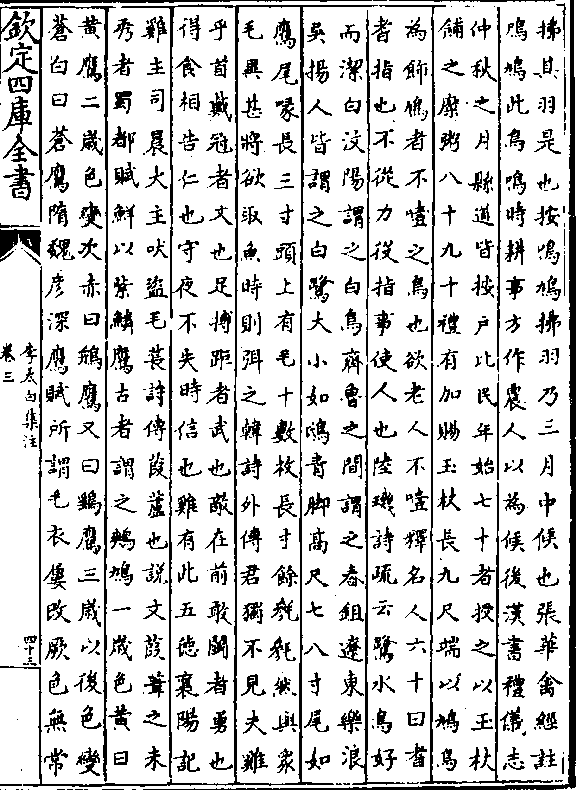 拂其羽是也按鳴鳩拂羽乃三月中候也張華禽經註
鳲鳩此鳥鳴時耕事方作農人以為候後漢書禮儀志
仲秋之月縣道皆按戶比民年始七十者授之以玉杖
餔之糜粥八十九十禮有加賜玉杖長九尺端以鳩鳥
為飾鳩者不噎之鳥也欲老人不噎釋名人六十曰耆
耆指也不從力役指事使人也陸璣詩疏云鷺水鳥好
而潔白汶陽謂之白鳥齊魯之間謂之舂鉏遼東樂浪
吳揚人皆謂之白鷺大小如鴟青脚高尺七八寸尾如
鷹尾喙長三寸頭上有毛十數枚長寸餘毿毿然與衆
毛異甚將欲取魚時則弭之韓詩外傳君獨不見夫雞
乎首戴冠者文也足搏距者武也敵在前敢鬭者勇也
得食相告仁也守夜不失時信也雞有此五德襄陽記
雞主司晨犬主吠盜毛萇詩傳葭蘆也說文葭葦之未
秀者蜀都賦鮮以紫鱗鷹古者謂之鷞鳩一歲色黃曰
黃鷹二歲色變次赤曰鴘鷹又曰鷂鷹三歲以後色變
蒼白曰蒼鷹隋魏彥深鷹賦所謂毛衣屢改厥色無常
欽定四庫全書
李太白集注
卷三
四十三